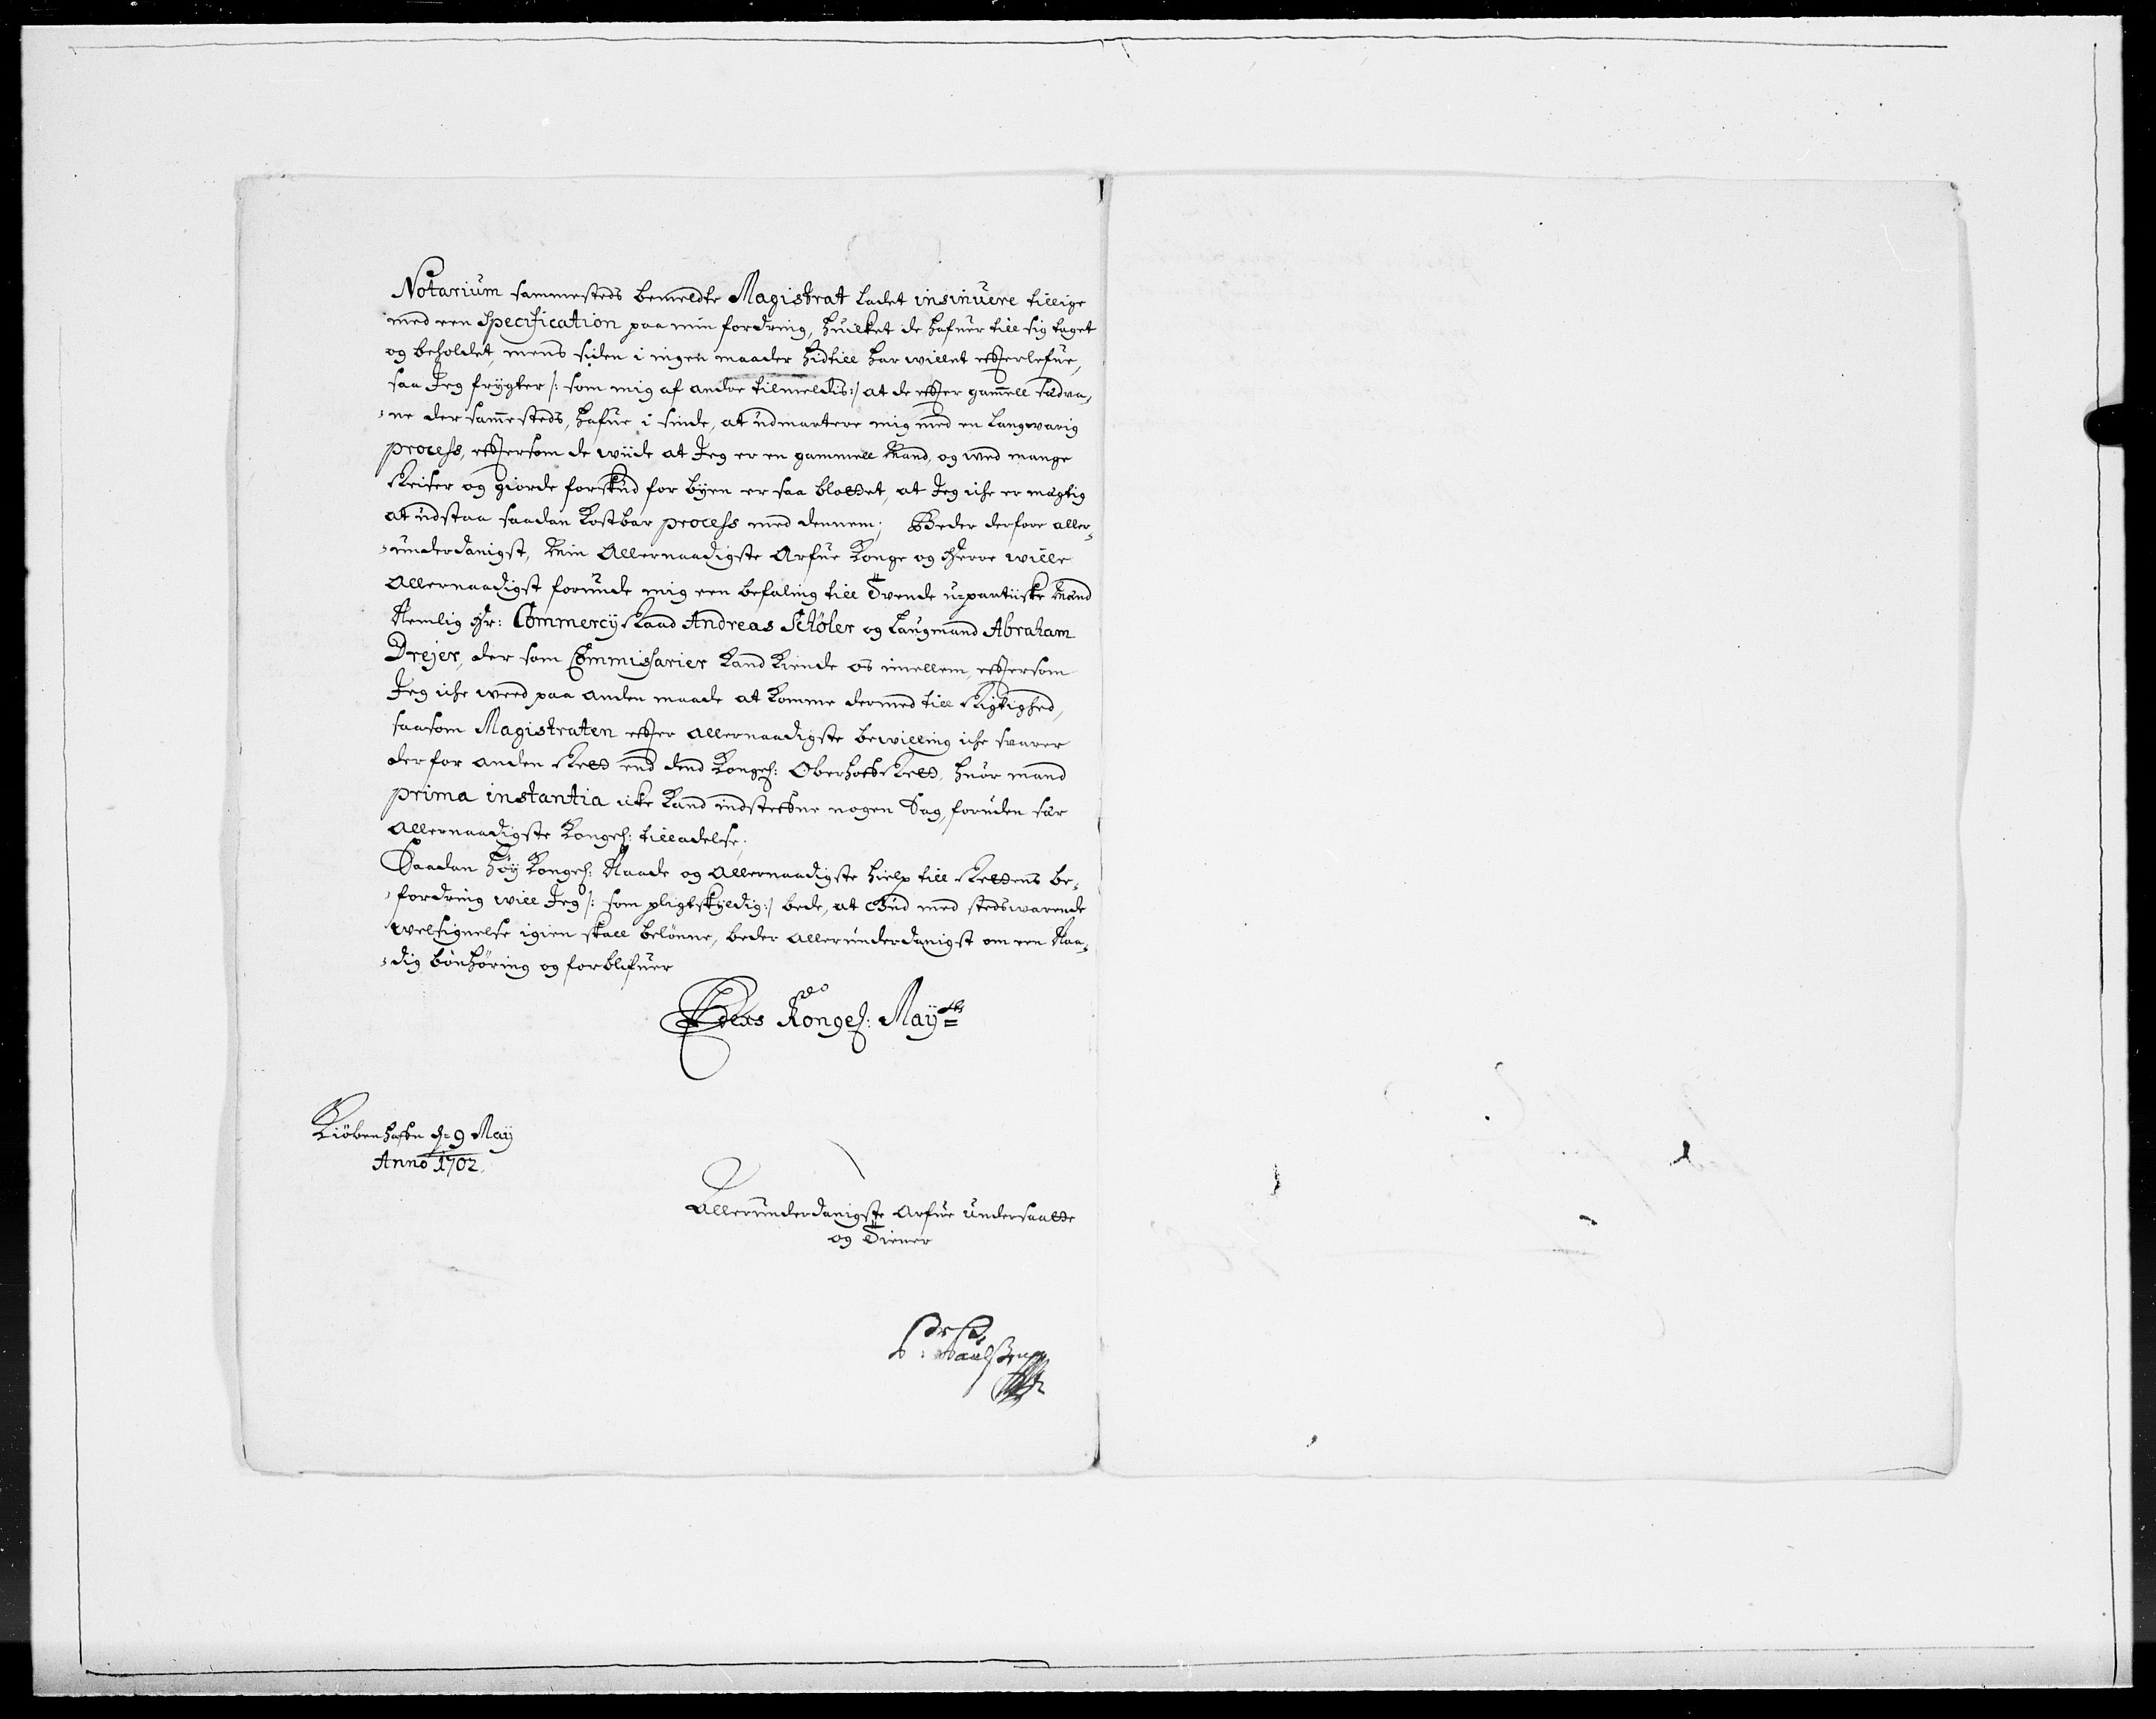 Notarium sammesteds bemeldte Magistrat ladet insinuere tillige
med een Specification paa min fordring, huilket de hafuer till sig taget
og beholdet, mens siden i ingen maader hidtill har willet effterlefue,
saa Jeg frygter /: som mig af andre tilmeldis:/ at de effter gamell sædva,,
,,ne der sammesteds, hafue i sinde, at udmartere mig med en langwarig
process, effterson de wiide at Jeg er en gammell Mand, og wed mange
Reiser og giorde forskud for byen er saa blottet, at Jeg iche er mægtig
at udstaa saadan Kostbar process med dennem; Beder derfore aller,,
,,underdanigst, Min Allernaadigste Arfue Konge og Herre wille
Allernaadigst forunde mig een befaling till Tvende u-partiiske Mænd
Nemlig Hr: Commercy Raad Andreas Schøler og Laugmand Abraham
Drejer, der som Commissarier Kand Kiende os imellem, efftersom
Jeg iche weed paa anden maade at Komme dermed till Rigtighed,
saasom Magistraten effter allernaadigste bewilling iche svarer
der for anden Rett end dend Kongel: Oberhoff Rett, huor mand
prima instantia icke Kand indsteffne nogen Sag, foruden sær
Allernaadigste Kongel: tilladelse,
Saadan høy Kongel: Naade og Allernaadigste hielp till Rettens be,,
,,fordring will Jeg /: som pligtskyldig:/ bede, at Gud med stedswarende
welsignelse igien skall belønne, beder allerunderdanigst om een Naa,,
,,dig bønhøring og forblifuer
Eders Kongel: Mayts
Kiøbenhaffn d: 9 May
Anno 1702.
Allerunderdanigste Arfue undersaatte
og Tiener